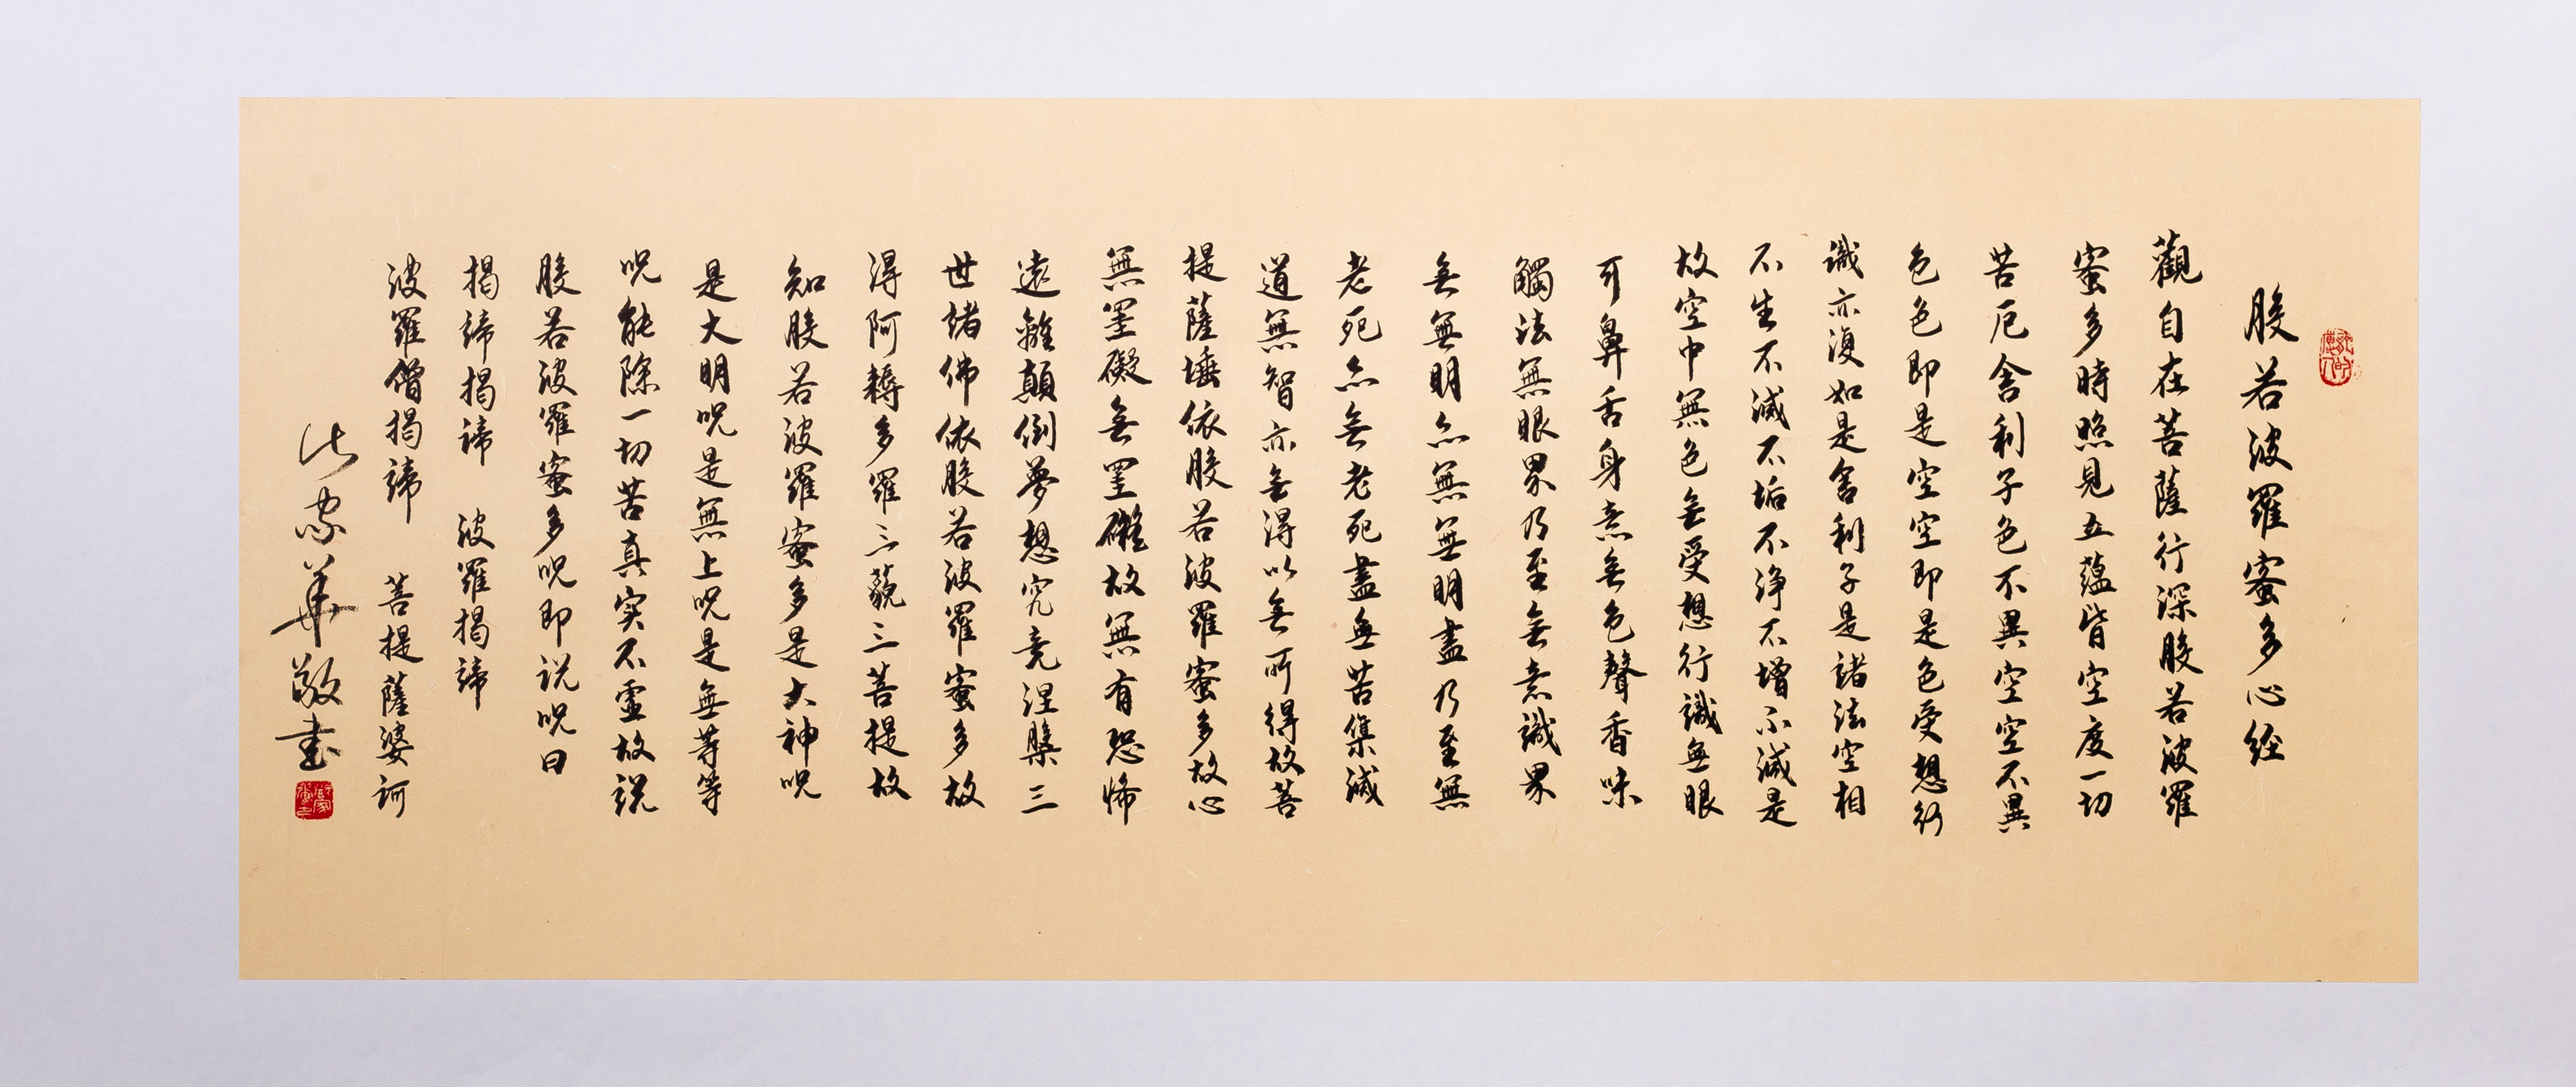 般若波羅蜜多心經
觀自在菩薩行深般若波羅
蜜多時照見五蘊皆空度一切
苦厄舍利子色不異空空不異
色色即是空空即是色受想行
識亦復如是舍利子是諸法空相
不生不滅不垢不淨不增不減是
故空中無色無受想行識無眼
耳鼻舌身意無色聲香味
觸法無眼界乃至無意識界
無無明亦無無明盡乃至無
老死亦無老死盡無苦集滅
道無智亦無得以無所得故菩
提薩埵依般若波羅蜜多故心
無罣礙無罣礙故無有恐怖
遠離顛倒夢想究竟涅槃三
世諸佛依般若波羅蜜多故
得阿耨多羅三藐三菩提故
知般若波羅蜜多是大神咒
是大明咒是無上咒是無等等
咒能除一切苦真实不虛故説
般若波羅蜜多咒即説咒曰
揭諦揭諦 波羅揭諦
波羅僧揭諦 菩提薩婆訶
家華敬書